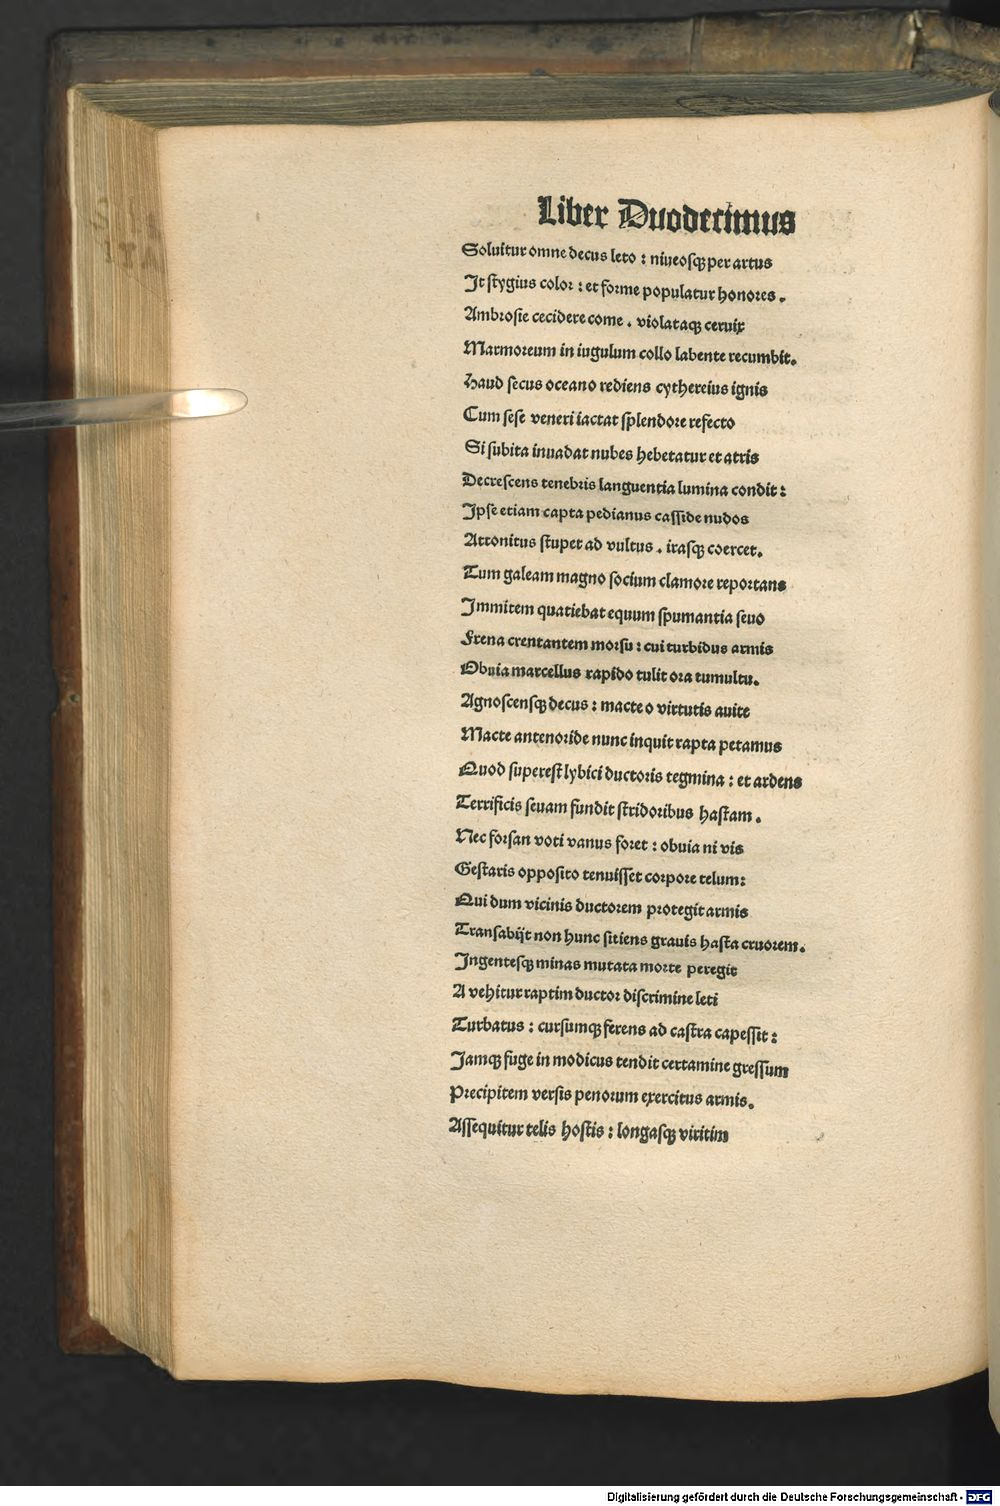 Liber Duodecimus
Soluitur omne decus leto : niueosqꝫ per artus
It stygius color : et forme populatur honores .
Ambrosie cecidere come . violataqꝫ ceruix
Marmoreum in iugulum collo labente recumbit.
Haud secus oceano rediens cythereius ignis
Cum sese veneri iactat splendore refecto
Si subita inuadat nubes hebetatur et atris
Decrescens tenebris languentia lumina condit :
Ipse etiam capta pedianus casside nudos
Attonitus stupet ad vultus . irasqꝫ coercet.
Tum galeam magno socium clamore reportans
Immitem quatiebat equum spumantia seuo
Frena crentantem morsu : cui turbidus armis
Obuia marcellus rapido tulit ora tumultu.
Agnoscensqꝫ decus : macte o virtutis auite
Macte antenoride nunc inquit rapta petamus
Quod superest lybici ductoris tegmina : et ardens
Terrificis seuam fundit stridoribus hastam .
Nec forsan voti vanus foret : obuia ni vis
Gestaris opposito tenuisset corpore telum:
Qui dum vicinis ductorem protegit armis
Transabijt non hunc sitiens grauis hasta cruorem.
Ingentesqꝫ minas mutata morte peregit
A vehitur raptim ductor discrimine leti
Turbatus : cursumqꝫ ferens ad castra capessit :
Jamqꝫ fuge in modicus tendit certamine gressum
Precipitem versis penorum exercitus armis.
Assequitur telis hostis : longasqꝫ viritim
Digitalisierung gefördert durch die Deutsche Forschungsgemeinschaft - DFG